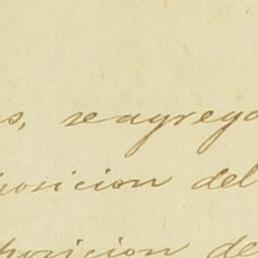 s, se agrega
posicion del
posicion de